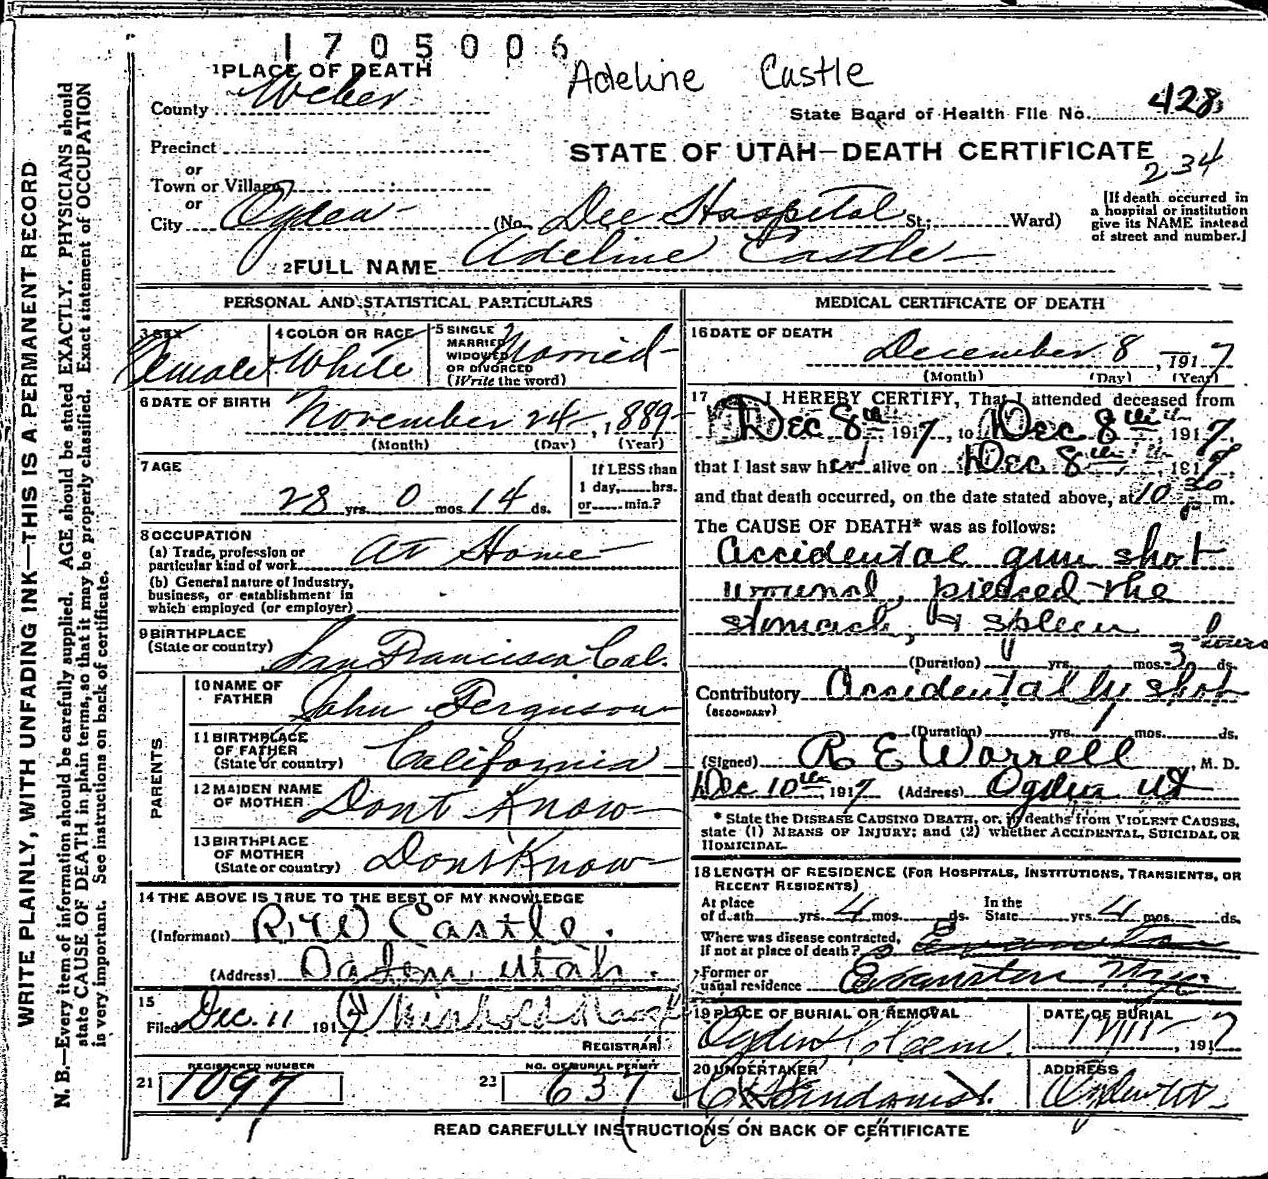 1705006
Adeline Castle
1 PLACE OF DEATH
County Weber
State Board of Health File No. 428
Precinct
STATE OF UTAH—DEATH CERTIFICATE
234
or
Town or Village
or
City Ogden (No. Dee Hospital St.; Ward)
[If death occurred in
a hospital or institution
give its NAME instead
of street and number.]
2 FULL NAME Adeline Castle
PERSONAL AND STATISTICAL PARTICULARS
3 SEX
Female
4 COLOR OR RACE
White
5 SINGLE
MARRIED
WIDOWED
OR DIVORCED
(Write the word)
Married
6 DATE OF BIRTH
November 24, 1889
(Month) (Day) (Year)
7 AGE
28 yrs. 0 mos. 14 ds.
If LESS than
1 day, hrs.
or min.?
8 OCCUPATION
(a) Trade, profession or
particular kind of work At Home
(b) General nature of Industry,
business, or establishment in
which employed (or employer)
9 BIRTHPLACE
(State or country) San Francisco Cal.
PARENTS
10 NAME OF
FATHER John Ferguson
11 BIRTHPLACE
OF FATHER
(State or country) California
12 MAIDEN NAME
OF MOTHER Dont Know
13 BIRTHPLACE
OF MOTHER
(State or country) Dont Know
14 THE ABOVE IS TRUE TO THE BEST OF MY KNOWLEDGE
(Informant) R. W Castle.
(Address) Utah.
15
Filed Dec. 11 1917
REGISTRAR
REGISTERED NUMBER
21 1097
NO. OF BURIAL PERMIT
23 637
MEDICAL CERTIFICATE OF DEATH
16 DATE OF DEATH
December 8, 1917
(Month) (Day) (Year)
17 I HEREBY CERTIFY, That I attended deceased from
Dec 8th, 1917, to Dec 8th, 1917,
that I last saw her alive on Dec 8th, 1917,
and that death occurred, on the date stated above, at 10 30 P m.
The CAUSE OF DEATH* was as follows:
Accidental gun shot
wound, pierced the
stomach, & spleen
(Duration) yrs. mos. 3 hours ds.
Contributory Accidentally shot
(SECONDARY)
(Duration) yrs. mos. ds.
(Signed) R E Worrell, M. D.
Dec 10th 1917 (Address) Ogden Ut
* State the DISEASE CAUSING DEATH, or, in deaths from VIOLENT CAUSES,
state (1) MEANS OF INJURY; and (2) whether ACCIDENTAL, SUICIDAL OR
HOMICIDAL.
18 LENGTH OF RESIDENCE (FOR HOSPITALS, INSTITUTIONS, TRANSIENTS, OR
RECENT RESIDENTS)
At place
of death yrs. 4 mos. ds.
In the
State yrs. 4 mos. ds.
Where was disease contracted,
if not at place of death? Evanston
Former or
usual residence Evanston Wyo.
19 PLACE OF BURIAL OR REMOVAL
Ogden Cem.
DATE OF BURIAL
12/11, 1917
20 UNDERTAKER
ADDRESS
Ogden Ut
READ CAREFULLY INSTRUCTIONS ON BACK OF CERTIFICATE
WRITE PLAINLY, WITH UNFADING INK—THIS IS A PERMANENT RECORD
N. B.—Every item of information should be carefully supplied. AGE should be stated EXACTLY. PHYSICIANS should
state CAUSE OF DEATH in plain terms, so that it may be properly classified. Exact statement of OCCUPATION
is very important. See instructions on back of certificate.